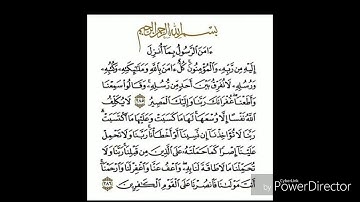 بسم الله الرحمن الرحيم
ءامن الرسول بما أنزل
إليه من ربه والمؤمنون كل ءامن بالله وملئكته وكتبه
ورسله لا نفرق بين أحد من رسله وقالوا سمعنا
وأطعنا غفرانك ربنا وإليك المصير ٢٨٥ لا يكلف
الله نفسا إلا وسعها لها ما كسبت وعليها ما اكتسبت
ربنا لا تؤاخذنا إن نسينا أو أخطأنا ربنا ولا تحمل
علينا إصرا كما حملته على الذين من قبلنا ربنا ولا
تحملنا ما لا طاقة لنا به واعف عنا واغفر لنا وارحمنا
أنت مولىنا فانصرنا على القوم الكفرين ٢٨٦
CyberLink
PowerDirector